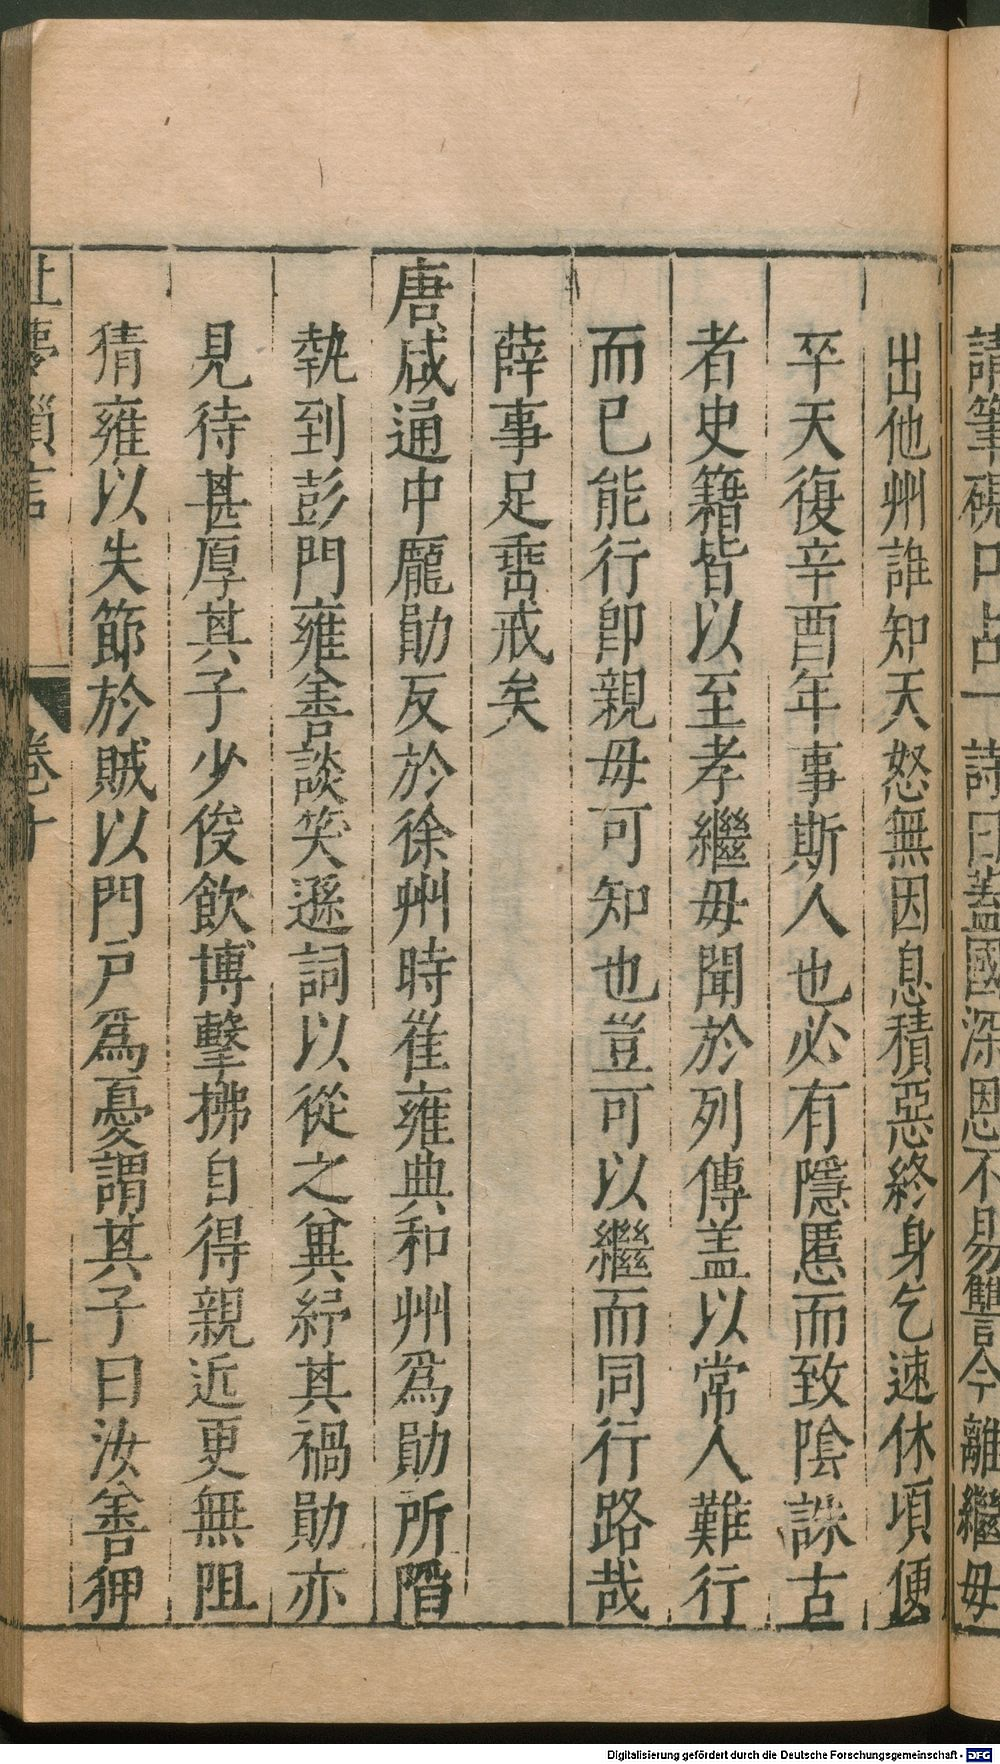 請筆硯口占一詩曰蓋國深恩不易讐今離繼母
出他州誰知天怒無因息積惡終身乞速休頃便
卒天復辛酉年事斯人也必有隱慝而致陰誅古
者史籍皆以至孝繼毋聞於列傳盖以常人難行
而已能行卽親毋可知也豈可以繼而同行路哉
薛事足垂戒矣
唐咸通中龎勛反於徐州時崔雍典和州爲勛所㬱
執到彭門雍善談笑遜詞以從之冀紓其禍勛亦
見待甚厚其子少俊飲博擊拂自得親近更無阻
猜雍以失節於賊以門戶爲憂謂其子曰汝善狎
卷十
十
Digitalisierung gefördert durch die Deutsche Forschungsgemeinschaft - DFG